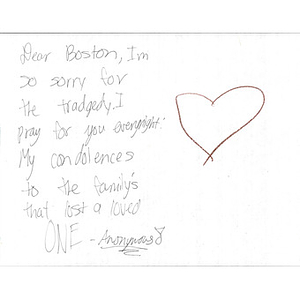 Dear Boston, I'm
so sorry for
the tradgedy. I
pray for you everynight.
My condolences
to the family's
that lost a loved
ONE - Anonymous